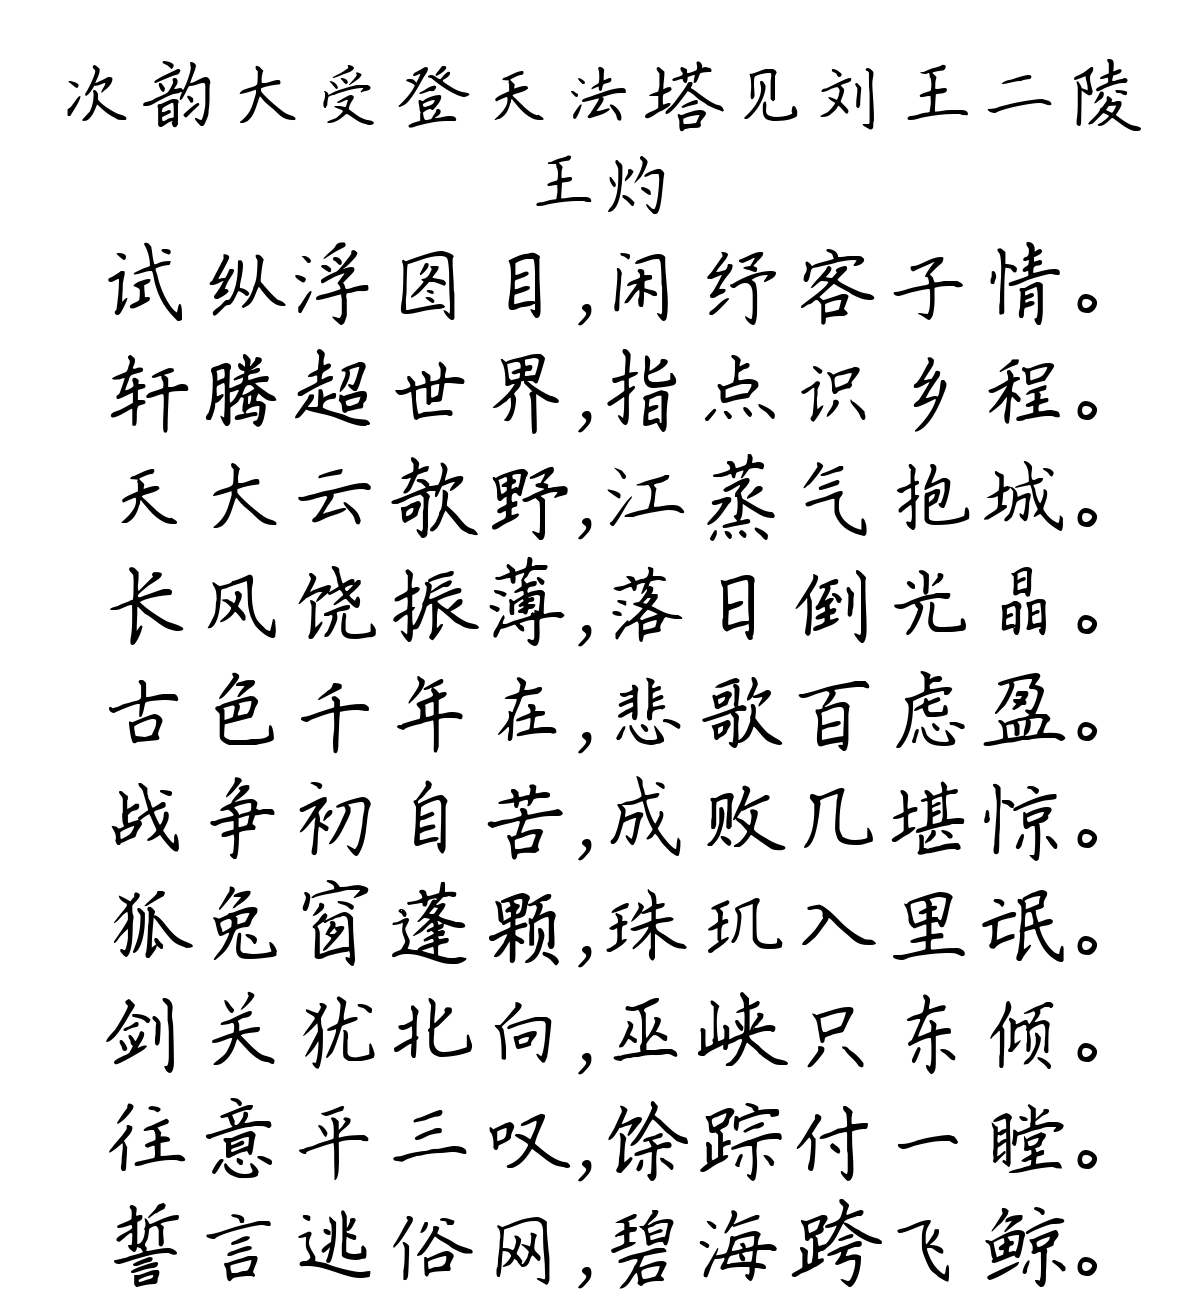 次韵大受登天法塔见刘王二陵
王灼
试纵浮图目,闲纾客子情。
轩腾超世界,指点识乡程。
天大云欹野,江蒸气抱城。
长风饶振薄,落日倒光晶。
古色千年在,悲歌百虑盈。
战争初自苦,成败几堪惊。
狐兔窗蓬颗,珠玑入里氓。
剑关犹北向,巫峡只东倾。
往意平三叹,馀踪付一瞠。
誓言逃俗网,碧海跨飞鲸。